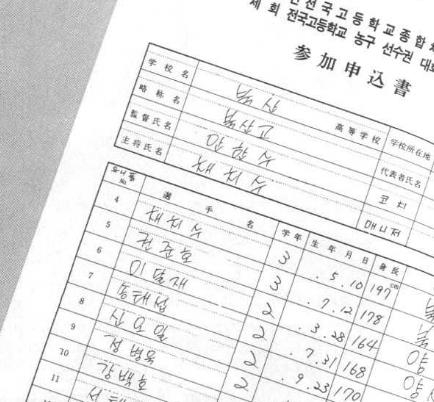 전국고등학교종합체
제 회 전국고등학교 농구 선수권 대회
参加申込書
学校名 북산 高等学校 学校所在地
略称名 북산고 代表者氏名
監督氏名 안한수 코치
主将氏名 채치수 매니저
유니폼 No. 選手名 学年 生年月日 身長
4 채치수 3 . 5. 10 197cm
5 권준호 3 . 7. 12 178
6 이달재 2 . 3. 28 164
7 2 . 7. 31 168
8 신오일 2 . 9. 23 170
9 정병욱
10 강백호
11 서태